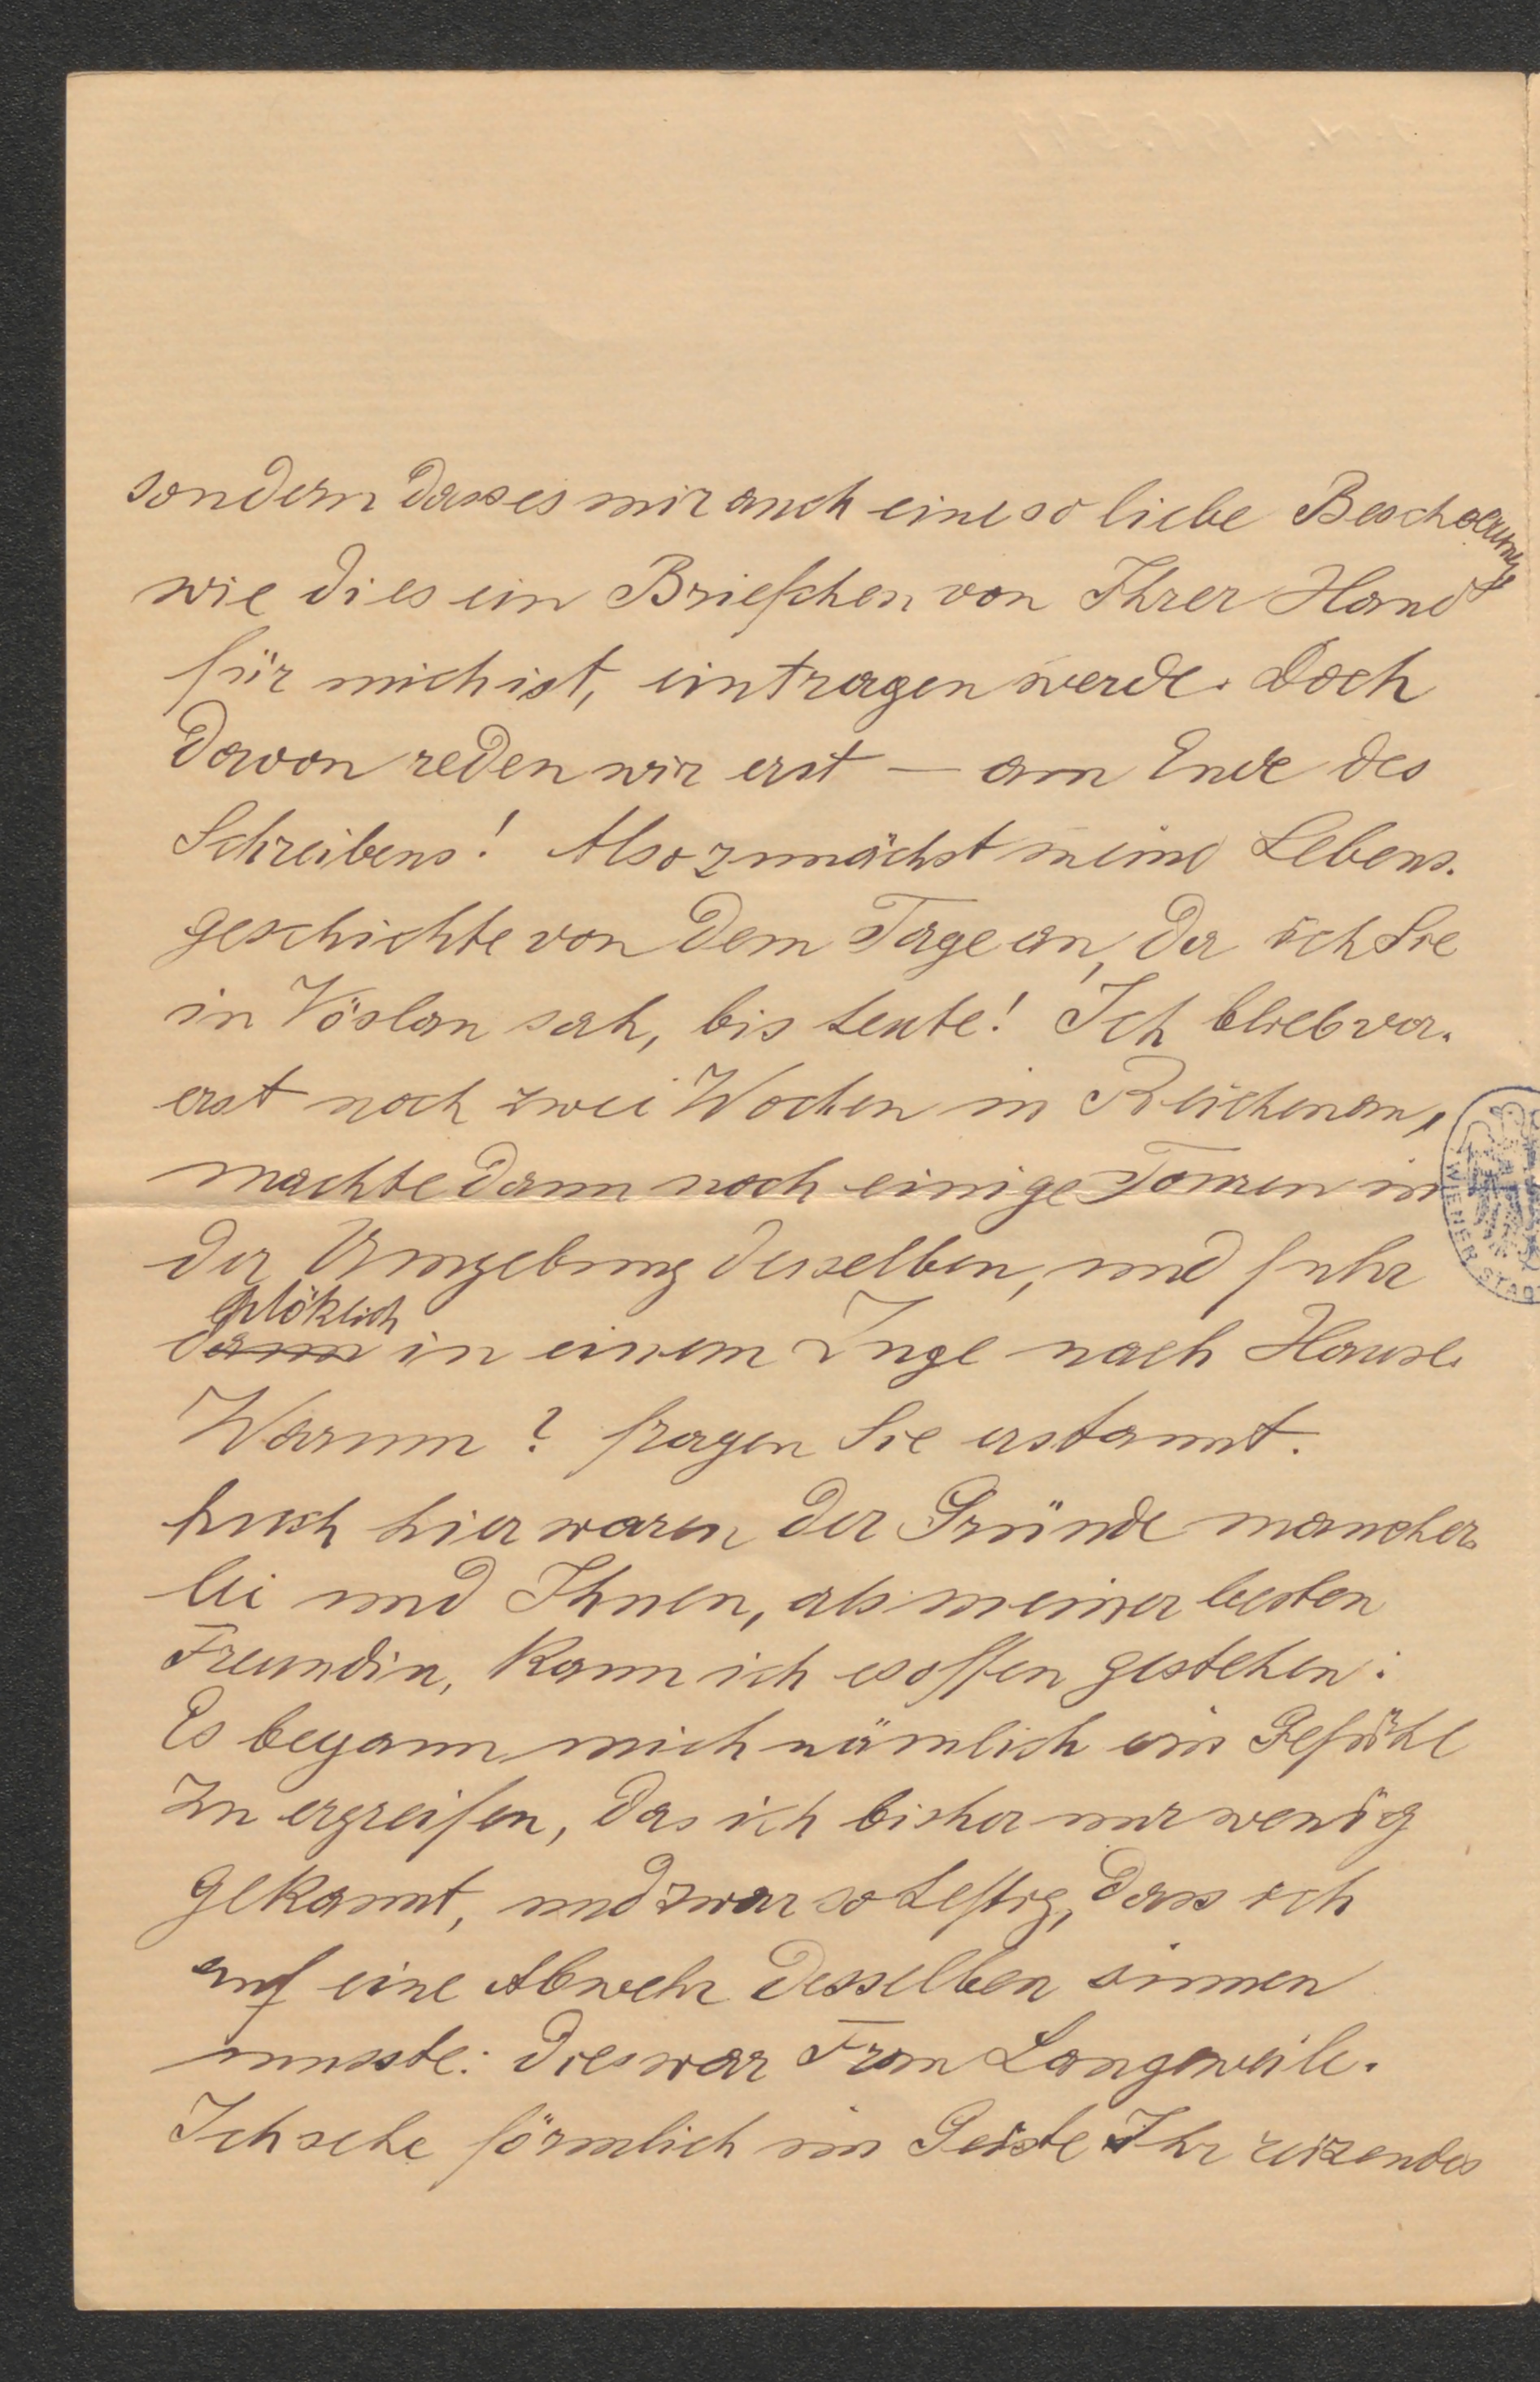 sondern dass es mir auch eine so liebe Bescherung
wie dies ein Briefchen von Ihrer Hand
für mich ist, eintragen werde. Doch
davon reden wir erst — am Ende des
Schreibens! Also zunächst meine Lebens-
geschichte von dem Tage an, da ich Sie
in Vöslau sah, bis heute! Ich blieb vor-
erst noch zwei Wochen in Reichenau,
machte dann noch einige Touren in
der Umgebung desselben, und fuhr
plötzlich
dann in einem Zuge nach Hause.
Warum? fragen Sie erstaunt.
Auch hier waren der Gründe mancher-
lei und Ihnen, als meiner besten
Freundin, kann ich es offen gestehen:
Es begann mich nämlich ein Gefühl
zu ergreifen, das ich bisher nur wenig
gekannt, und zwar so heftig, dass ich
auf eine Abwehr desselben sinnen
musste: dies war Frau Langeweile.
Ich sehe förmlich im Geiste Ihr reizendes
WIENER STAD